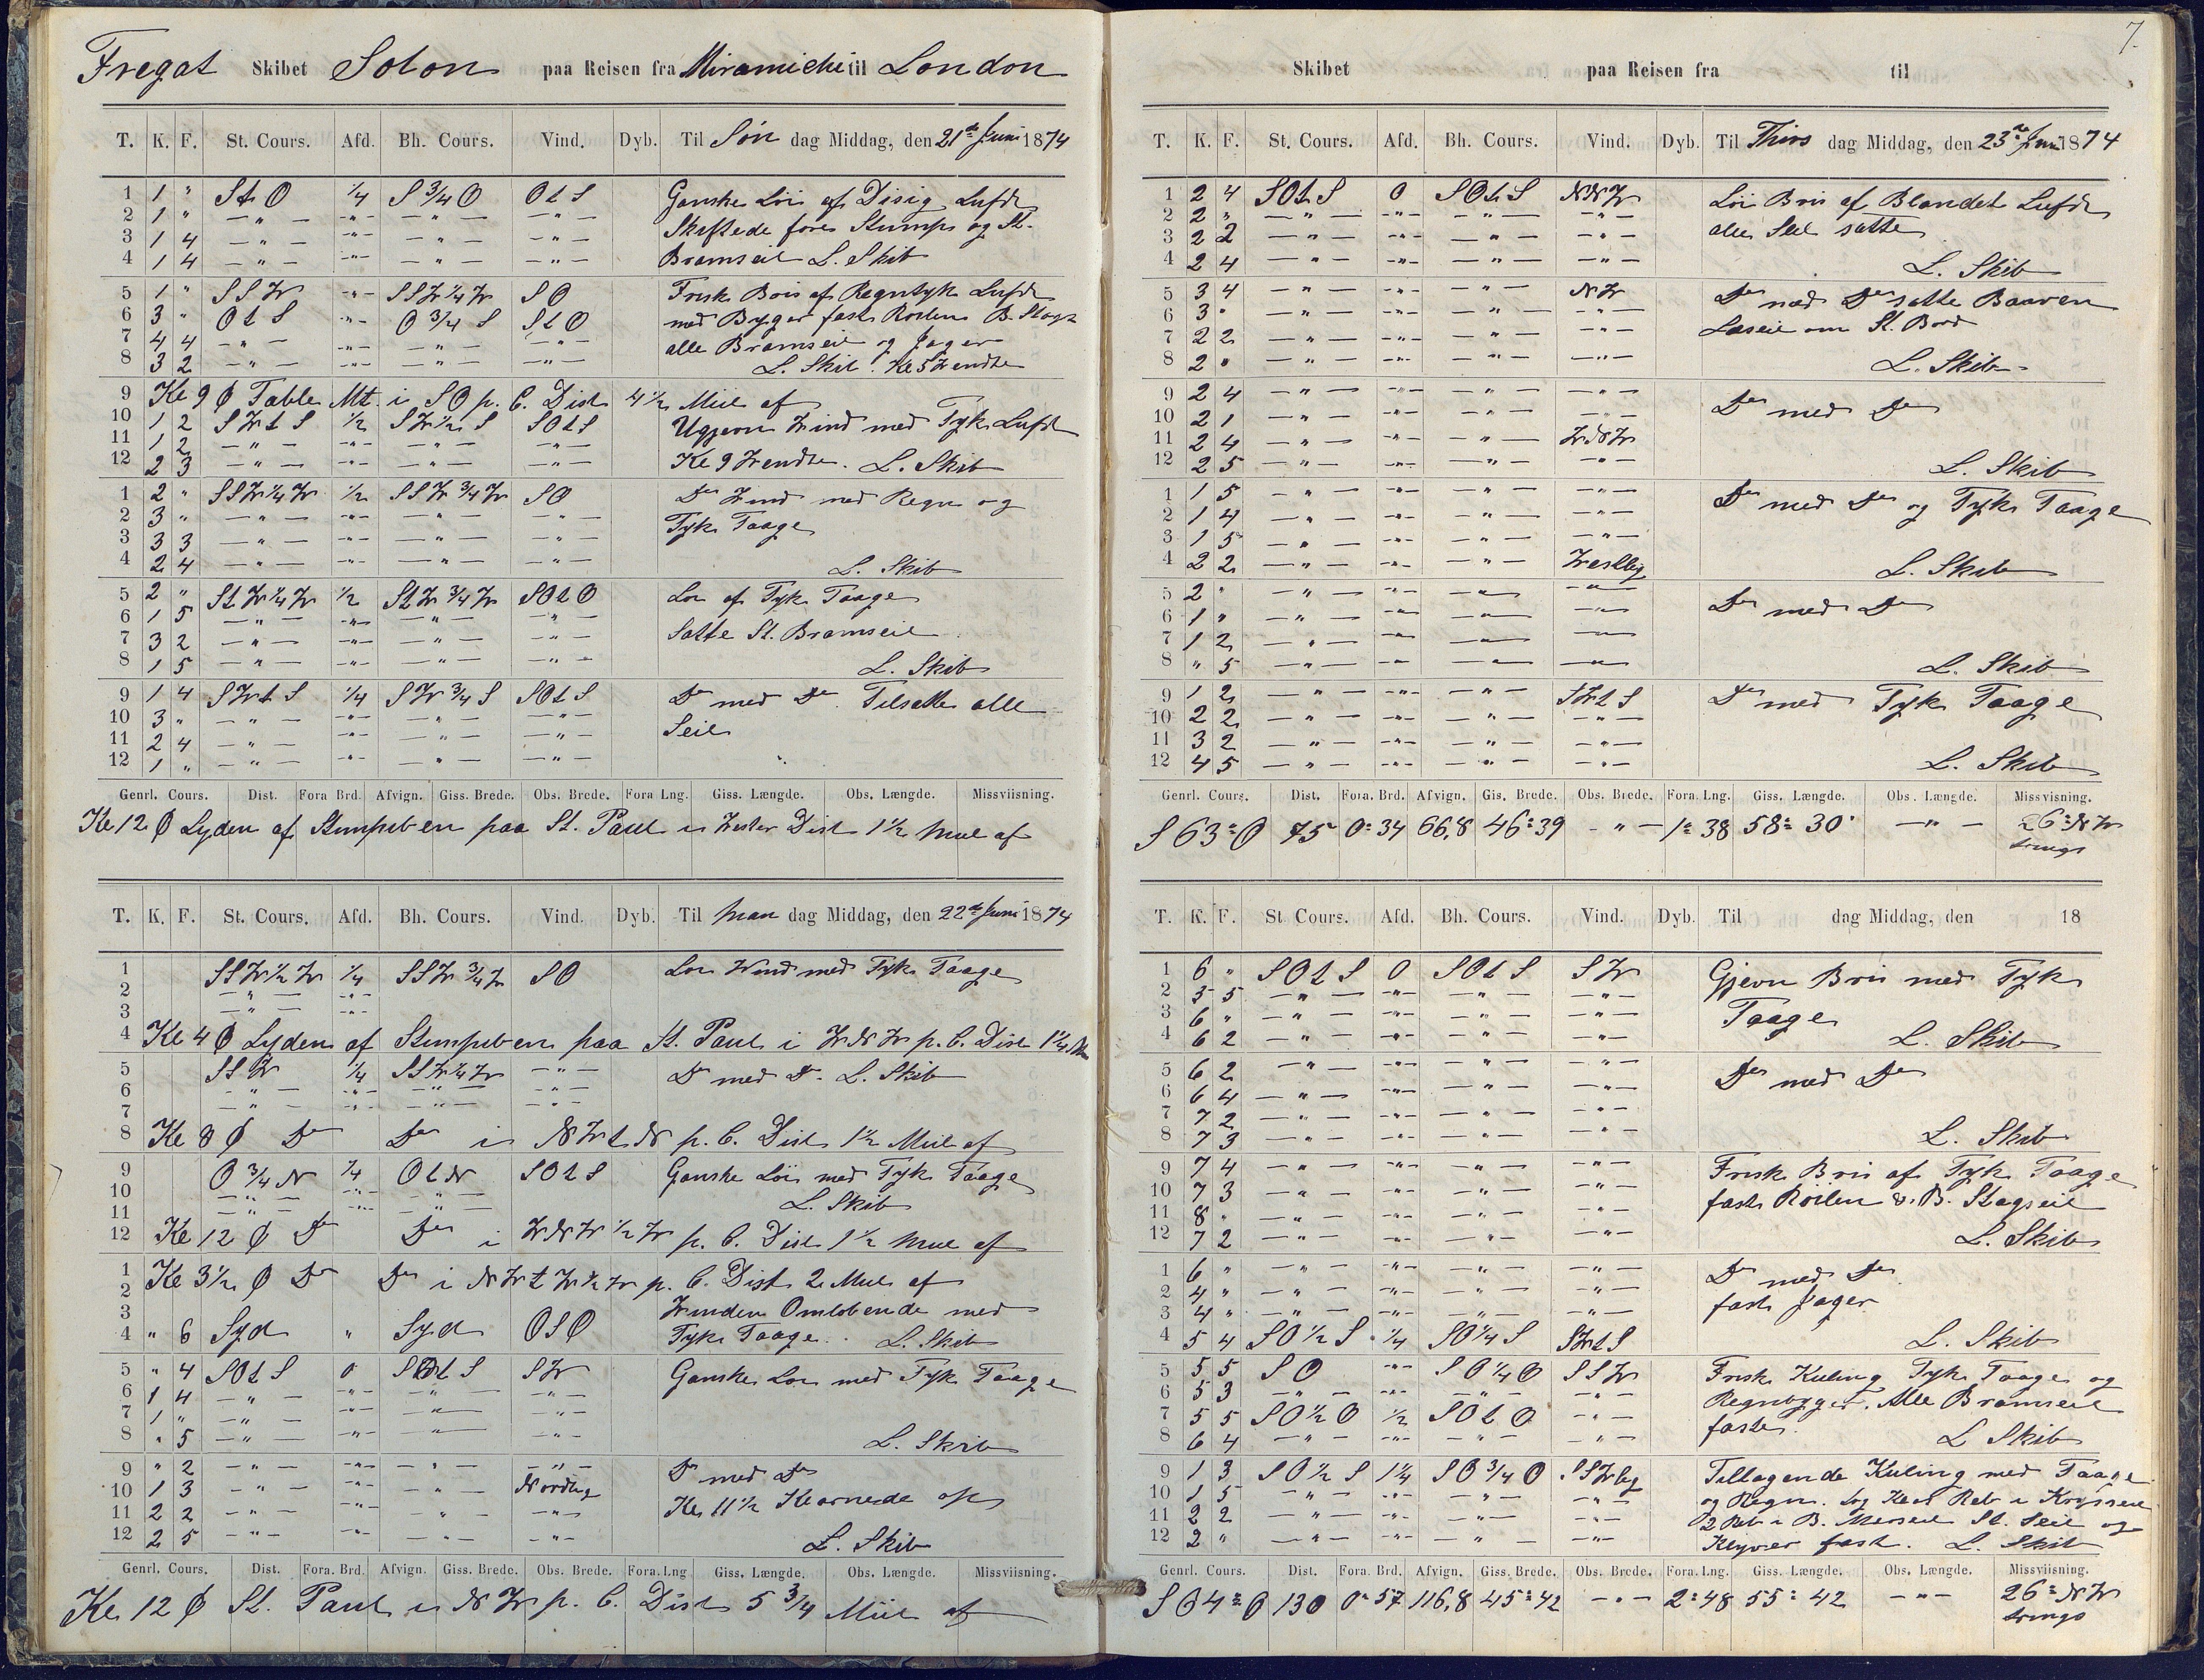 Fregat Skibet Solon paa Reisen fra Miramichi til London
T. K. F. St. Cours. Afd. Bh. Cours. Vind. Dyb. Til Søn dag Middag, den 21de Juni 1874
1 1 " St O 1/4 S 3/4 O O t S Ganske Löi af Disig Luft
2 1 " — " — — " — — " — — " — Skiftede fores Stumps og St.
3 1 4 — " — — " — — " — — " — Bramseil L. Skib
4 1 4 — " — — " — — " — — " —
5 1 " SSW — " — SSW 1/4 W SO Frisk Bris af Regntyk Luft
6 3 " O t S — " — O 3/4 S St O med Byger fast Roilen B. Stags
7 4 4 — " — — " — — " — — " — alle Bramseil og Jager
8 3 2 — " — — " — — " — — " — L. Skib. Kl 5 Wendte
9 Kl 9 Ø Table Mt. i SO p. C. Dist 4 1/2 Miil af
10 1 2 SW t S 1/2 SW 1/2 S SO t S Ugjevn Wind med Tyk Luft
11 1 2 — " — — " — — " — — " — Kl 9 Wendte. L. Skib
12 2 3 — " — — " — — " — — " —
1 2 " SSW 1/4 W 1/2 SSW 3/4 W SO Do Wind med Regn og
2 3 " — " — — " — — " — — " — Tyk Taage
3 3 3 — " — — " — — " — — " —
4 2 4 — " — — " — — " — — " — L. Skib
5 2 " St W 1/4 W 1/2 St W 3/4 W SO t O Löi af Tyk Taage
6 1 5 — " — — " — — " — — " — Satte St. Bramseil
7 3 2 — " — — " — — " — — " —
8 1 5 — " — — " — — " — — " — L. Skib
9 1 4 SW t S 1/4 SW 3/4 S SO t S Do med Do Tilsatte alle
10 3 " — " — — " — — " — — " — Seil
11 2 4 — " — — " — — " — — " —
12 1 " — " — — " — — " — — " —
Genrl. Cours. Dist. Fora Brd. Afvign. Giss. Brede. Obs. Brede. Fora Lng. Giss. Længde. Obs. Længde. Missviisning.
Kl 12 Ø Lyden af Stumpiben paa St. Paul i Wester Dist 1 1/2 Miil af
T. K. F. St. Cours. Afd. Bh. Cours. Vind. Dyb. Til Man dag Middag, den 22de Juni 1874
1 SSW 1/2 W 1/4 SSW 3/4 W SO Löi Wind med Tyk Taage
2 — " — — " —
3 — " — — " —
4 Kl 4 Ø Lyden af Stumpiben paa St. Paul i WNW p. C. Dist 1 1/4 M
5 SSW 1/4 SSW 1/4 W — " — Do med Do. L. Skib
6 — " — — " — — " — — " —
7 — " — — " — — " — — " —
8 Kl 8 Ø Do Do i NW t N p. C. Dist 1 1/2 Miil af
9 O 3/4 N 1/4 O t N SO t S Ganske Löi med Tyk Taage
10 — " — — " — — " — L. Skib
11 — " — — " — — " —
12 Kl 12 Ø Do Do i WNW 1/2 W p. C. Dist 1 1/2 Miil af
1 Kl 3 1/2 Ø Do Do i NW t W 1/2 W p. C. Dist 2 Miil af
2
3 Winden Omlobende med
4 " 6 Syd " Syd OSO Tyk Taage. L. Skib
5 " 4 SO t S 0 SO t S SW Ganske Löi med Tyk Taage
6 1 4 — " — — " — — " — — " —
7 1 " — " — — " — — " — — " —
8 " 5 — " — — " — — " — — " — L. Skib
9 " 2 — " — — " — — " — — " — Do med Do
10 1 3 — " — — " — — " — Nordlig Kl 11 1/2
11 2 2 — " — — " — — " — — " —
12 2 5 — " — — " — — " — — " — L. Skib
Genrl. Cours. Dist. Fora. Brd. Afvign. Giss. Brede. Obs. Brede. Fora. Lng Giss. Længde. Obs. Længde. Missviisning.
Kl 12 Ø St. Paul i NW p. C. Dist 5 3/4 Miil af
7.
Skibet paa Reisen fra til
T. K. F. St. Cours. Afd. Bh. Cours. Vind. Dyb. Til Thirs dag Middag, den 23de Juni 1874
1 2 4 SO t S 0 SO t S NNW Löi Bris af Blandet Luft
2 2 " — " — — " — — " — — " — alle Seil satte
3 2 2 — " — — " — — " — — " —
4 2 4 — " — — " — — " — — " — L. Skib
5 3 4 — " — — " — — " — NW Do med Do satte Baaven
6 3 " — " — — " — — " — — " — Læseil om St. Bord
7 2 2 — " — — " — — " — — " —
8 2 " — " — — " — — " — — " — L. Skib
9 2 4 — " — — " — — " — — " — Do med Do
10 2 1 — " — — " — — " — — " —
11 2 4 — " — — " — — " — WNW
12 2 5 — " — — " — — " — — " — L. Skib
1 1 5 — " — — " — — " — — " — Do med Do og Tyk Taage
2 1 4 — " — — " — — " — — " —
3 1 5 — " — — " — — " — — " —
4 2 2 — " — — " — — " — Westlig L. Skib
5 2 " — " — — " — — " — — " — Do med Do
6 1 " — " — — " — — " — — " —
7 1 2 — " — — " — — " — — " —
8 " 5 — " — — " — — " — — " — L. Skib
9 1 2 — " — — " — — " — SW t S Do med Tyk Taage
10 2 2 — " — — " — — " — — " —
11 3 2 — " — — " — — " — — " —
12 4 5 — " — — " — — " — — " — L. Skib
Genrl. Cours. Dist. Fora. Brd. Afvign. Gis. Brede. Obs. Brede. Fora. Lng. Giss. Længde. Obs. Længde. Missvisning.
S 63° O 75 0° 34 66,8 46° 39 — " — 1° 38 58° 30' — " — 26° NW
T. K. F. St. Cours. Afd. Bh. Cours. Vind. Dyb. Til dag Middag, den 18
1 6 " SO t S 0 SO t S SW Gjevn Bris med Tyk
2 5 5 — " — — " — — " — — " — Taage
3 6 " — " — — " — — " — — " —
4 6 2 — " — — " — — " — — " — L. Skib
5 6 2 — " — — " — — " — — " — Do med Do
6 6 4 — " — — " — — " — — " —
7 7 2 — " — — " — — " — — " —
8 7 3 — " — — " — — " — — " — L. Skib
9 7 4 — " — — " — — " — — " — Frisk Bris af Tyk Taage
10 7 3 — " — — " — — " — — " — fast Roilen & B. Stagseil
11 8 " — " — — " — — " — — " —
12 7 2 — " — — " — — " — — " — L. Skib
1 6 " — " — — " — — " — — " — Do med Do
2 4 " — " — — " — — " — — " — fast Jager
3 4 " — " — — " — — " — — " —
4 5 4 SO 1/2 S 1/4 SO 1/4 S SW t S L. Skib
5 5 5 SO — " — SO 1/4 O SSW Frisk Kuling Tyk Taage og
6 5 3 — " — — " — — " — — " — Regnbyger. Alle Bramseil
7 5 5 SO 1/2 O 1/2 SO t O — " — faste.
8 6 4 — " — — " — — " — — " — L. Skib
9 1 3 SO 1/2 S 1 1/4 SO 3/4 O SSWlig Tiltagende Kuling med Taage
10 1 5 — " — — " — — " — — " — og Regn. Reb i Krysseil
11 2 2 — " — — " — — " — — " — 2 Reb i B. Merseil St. Seil og
12 2 " — " — — " — — " — — " — Klyver fast. L. Skib
Genrl. Cours. Dist. Fora. Brd. Afvign. Giss. Brede. Obs. Brede. Fora. Lng. Giss. Længde. Obs. Længde. Missviisning.
S 64° O 130 0° 57 116,8 45° 42 — " — 2° 48 55° 42 — " — 26° NW